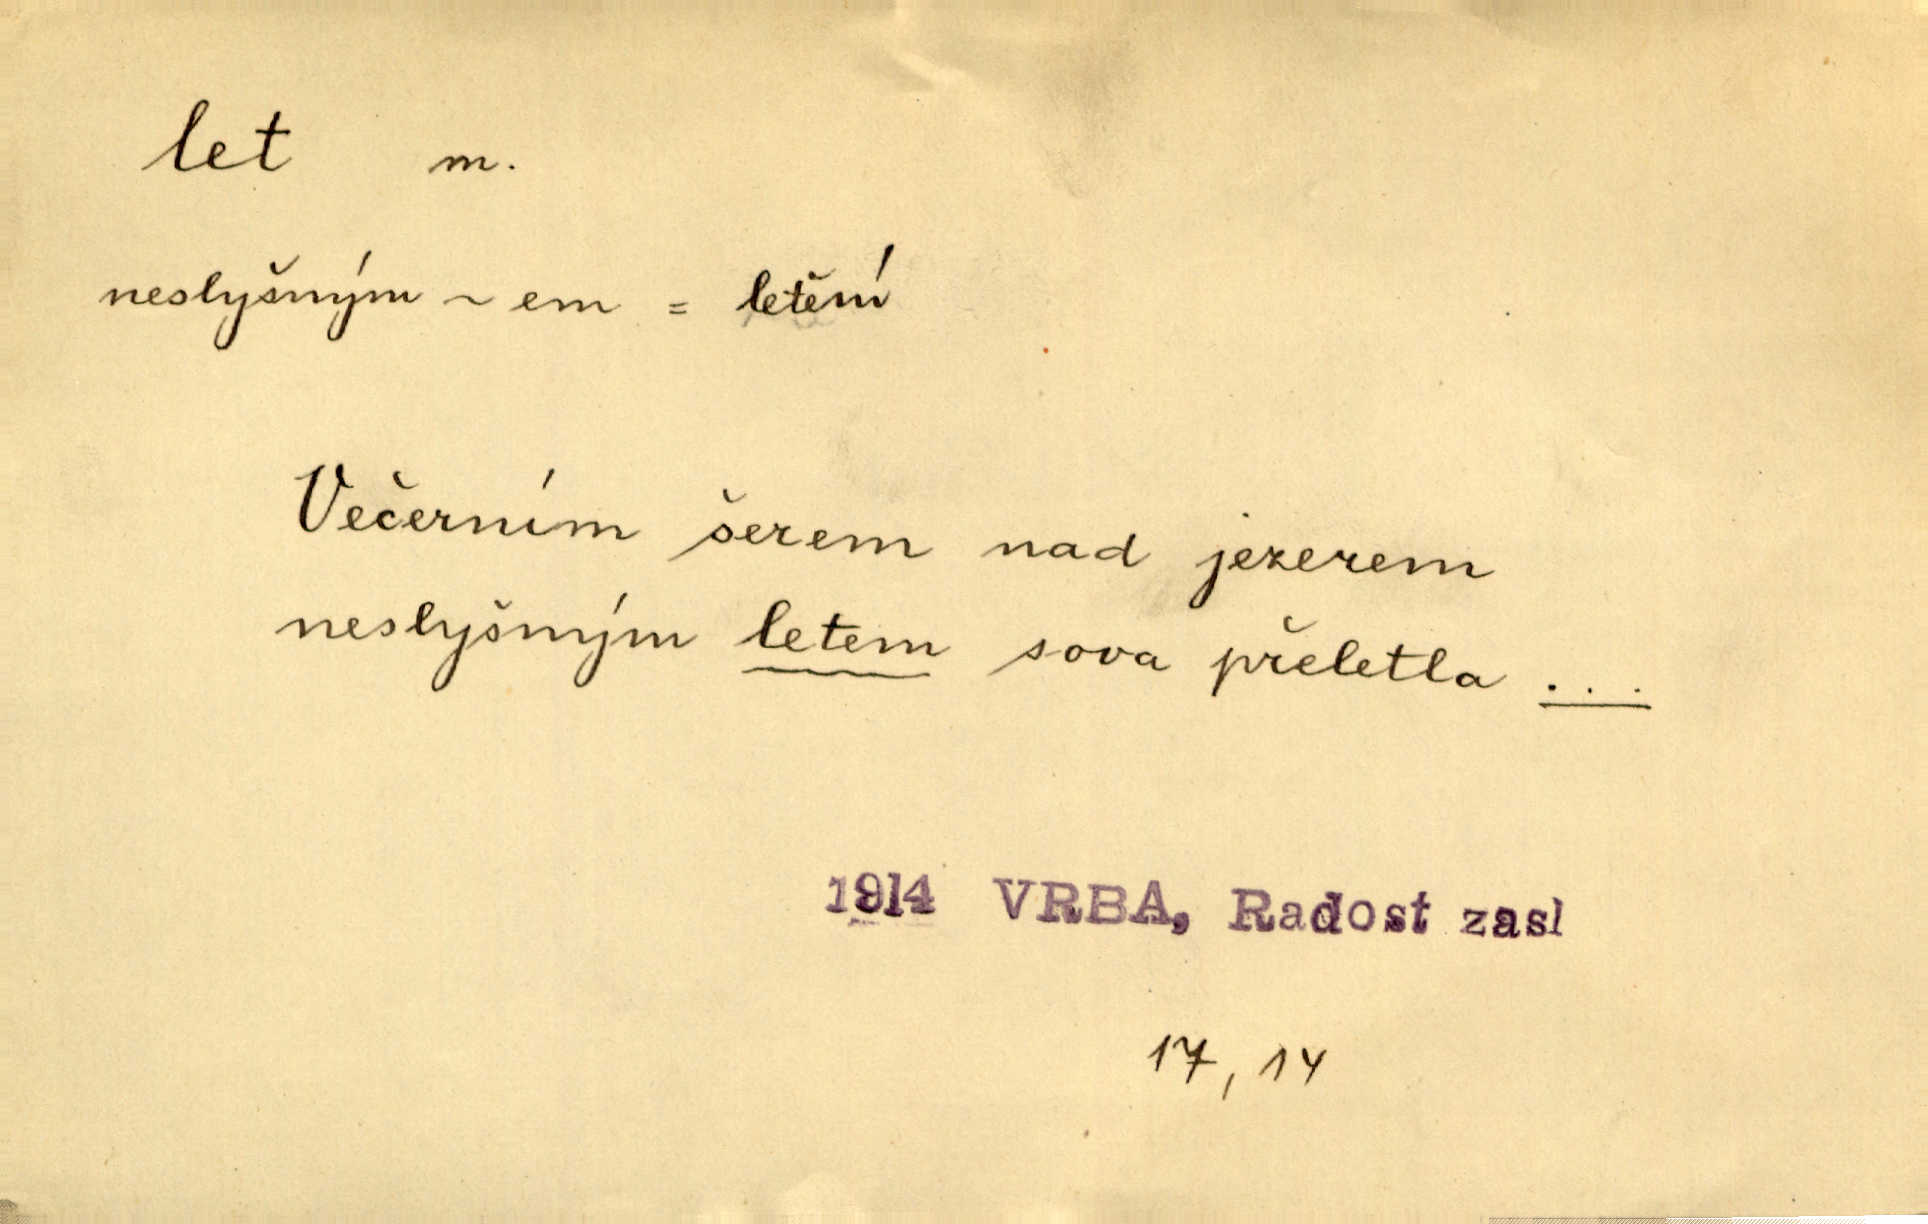 let m.
neslyšným ~ em = letění
Večerním šerem nad jezerem
neslyšným letem sova přeletla ...
1914 VRBA, Radost zasl
17, 14